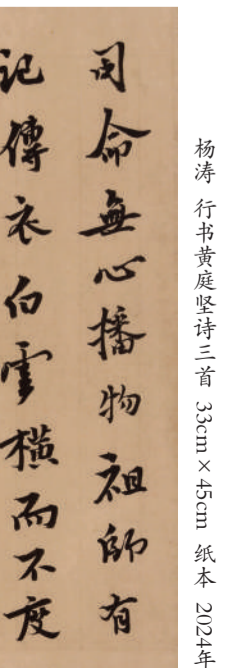 杨涛 行书黄庭坚诗三首 33cm×45cm 纸本 2024年
司命無心播物祖師有
記傳衣白雲橫而不度